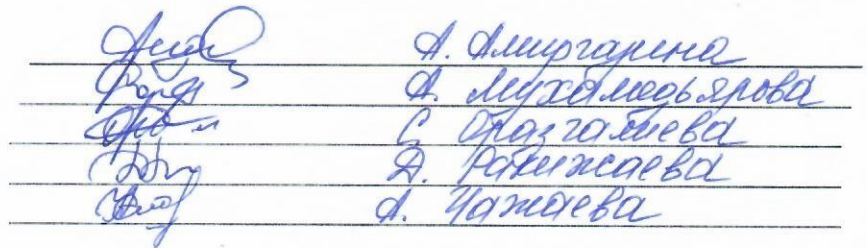 А. Амиргарина
А. Мухамедьярова
С. Оразгалиева
Д. Ракижаева
А. Чажаева